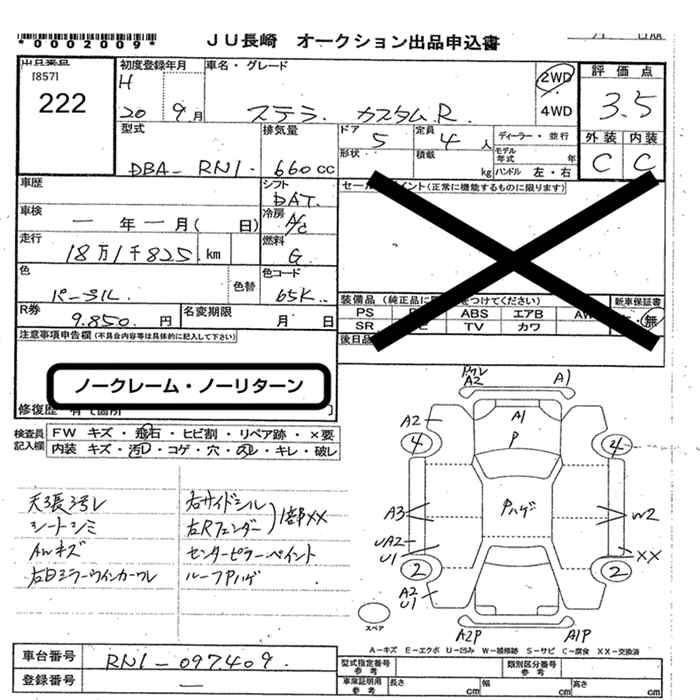 *0002009*
JU長崎 オークション出品申込書
[857]
222
初度登録年月
H
20 9月
車名・グレード
ステラ カスタムR.
2WD
4WD
評価点
3.5
外装 内装
C C
型式
DBA-RN1.
排気量
660cc
ドア 5
定員 4人
形状
積載 kg
ディーラー・並行
モデル年式 年
ハンドル 左・右
車歴
シフト
DAT.
セール ポイント(正常に機能するものに限ります)
車検
一年一月( 日)
冷房
A/C
走行
18万1千825. km
燃料
G
色
パープル.
色替
色コード
65K
装備品(純正品に をつけてください)
新車保証書
PS ABS エアB AW
SR TV カワ
無
R券
9.850. 円
名変期限
月 日
後日品
注意事項申告欄(不具合内容等は具体的に記入して下さい)
ノークレーム・ノーリターン
修復歴 有[箇所 ]
検査員記入欄
FW キズ・飛石・ヒビ割・リペア跡・×要
内装 キズ・汚レ・コゲ・穴・スレ・キレ・破レ
天張ヨゴレ
シートシミ
AWキズ
右ドアミラーウインカーワレ
右サイドシル
左Rフェンダー
1部XX
センターピラーペイント
ルーフPハゲ
A2
A1
A2
A1
P
4
4
Pハゲ
A3
W2
UA2
U1
XX
2
2
A2
U1
スペア
A2P
A1P
A-キズ E-エクボ U-凹み W-補修跡 S-サビ C-腐食 XX-交換済
車台番号
RN1-097409.
登録番号
—
型式指定番号 参考
類別区分番号 参考
車庫証明用 参考
長さ cm
幅 cm
高さ cm